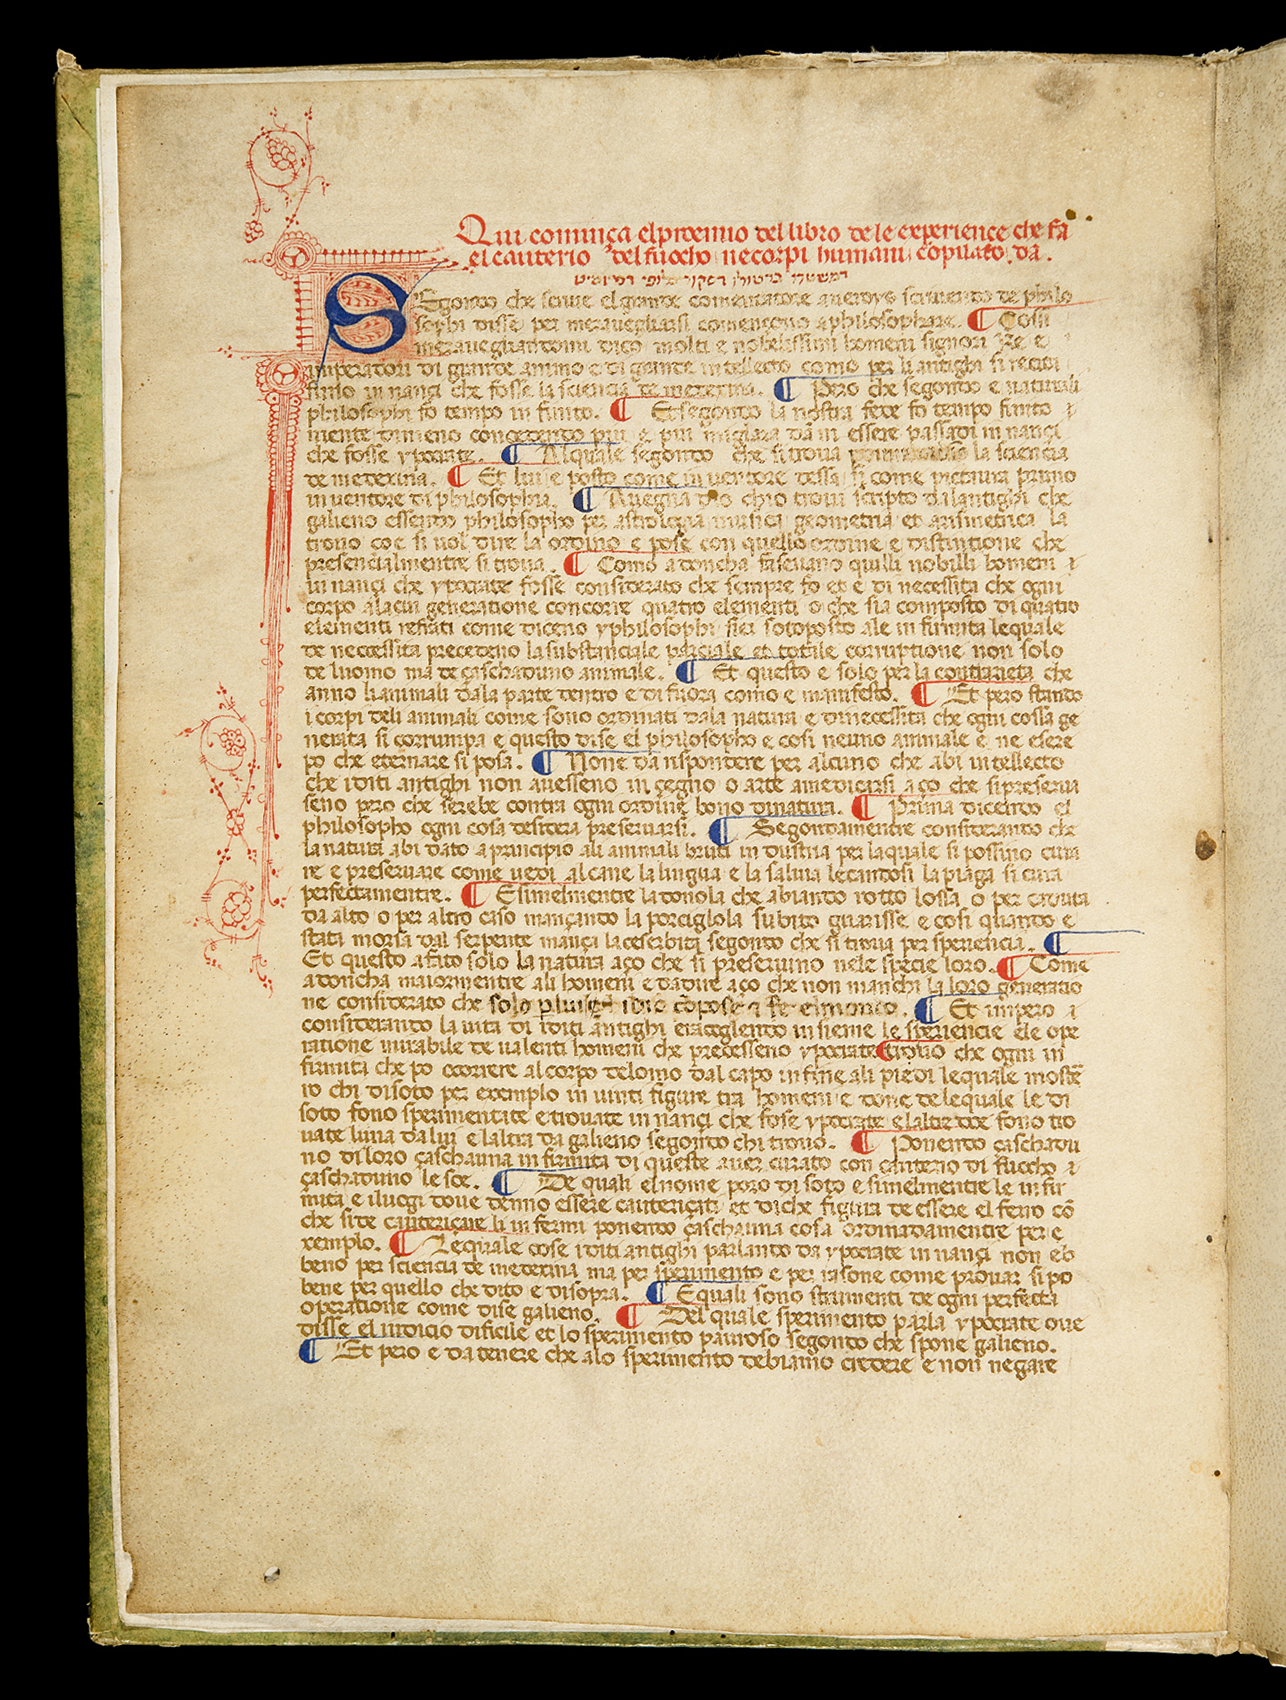 Qui cominça el proemio del libro de le experience che fa
el cauterio del fuocho ne corpi humani copilato da.
SEgondo che scrive el grande comentatore averoys scrivendo de philo
sophi disse per meravegliarsi comenceno a philosophare. ¶ Cossi
meravegliandomi dico molti e nobelissimi homeni signori Re e
imperatori di grande animo e di grande intellecto como per li antighi si recidi
inançi che fosse la sciencia de medexina. ¶ Pero che segondo e naturali
philosophi fo tempo infinito. ¶ Et segondo la nostra fede fo tempo finito
mente dimeno concedendo piu e piu migliara danni essere passadi in nançi
che fosse ypocrate. ¶ Al quale segondo che si trova la sciencia
de medexina. ¶ Et lui e posto come inventore dessa si come pictavra primo
inventore di philosophia. ¶ Avegna dio chio trovi scripto dal antighi che
galieno essendo philosopho per astrologia musica geometria et arismetrica la
trovo coe si vol dire la ordino e pose con quello ordine e distinctione che
presencialmentre si trova. ¶ Como adoncha fasevano quilli nobilli homeni
in nançi che ypocrate fosse considerato che sempre fo et e di necessita che ogni
corpo alacui generatione concorre quatro elementi o che sia composto di quatro
elementi refrati come diceno yphilosophi siei sotoposto ale infirmita lequale
de neccessita precedeno la substanciale parciale et totale corruptione non solo
de luomo ma de çaschaduno animale. ¶ Et questo e solo per la contrarieta che
anno li animali dala parte dentro e di fuora como e manifesto. ¶ Et pero stando
i corpi deli animali come sono ordinati dala natura e dinecessita che ogni cossa ge
nerata si corrumpa e questo dise el philosopho e cosi neuno animale e ne esere
po che eternare si posa. ¶ None da rispondere per alcuno che abi intellecto
che i diti antighi non avesseno inçegno o arte amedicarsi aço che si preserva
seno pero che serebe contra ogni ordine bono dinatura. ¶ Prima dicendo el
philosopho ogni cosa desidera preservarsi. ¶ Segondamentre considerando che
la natura abi dato a principio ali animali bruti industria per laquale si possino cura
re e preservare come vedi al cane la lingua e la saliva lecandosi la piaga si cura
perfectamentre. ¶ E simelmentre la donola che abiando rotto lossa o per caduta
da alto o per altro caso mançando la porciglola subito guarisse e cosi quando e
stata morsa dal serpente mançi la ceserbita segondo che si trova per sperientia. ¶
Et questo a fato solo la natura aço che si preservino nele specie loro. ¶ Come
adoncha maiormentre ali homeni e dadure aço che non manchi la loro generatio
ne considerato che solo p luise idio cõpose et fe el mondo. ¶ Et impero
considerando la vita di i diti antighi e racoglendo insieme le speriencie e le ope
ratione mirabile de valenti homeni che precesseno ypocrate trovo che ogni in
firmita che po ocorrere al corpo delomo dal capo infine ali piedi lequale mostre
ro chi disoto per exemplo in vinti figure tra homeni e done de lequale le di
soto fono sperimentate e trovate in nançi che fose ypocrate e laltre doe fono tro
vate luna da lui e laltra da galieno segondo chi trovo. ¶ Ponendo çaschadu
no di loro çaschauna infirmita di queste aver curato con cauterio di fuocho
çaschaduno le soe. ¶ De quali el nome poro di soto e simelmentre le infir
mita e i luogi dove denno essere cauteriçati et di che figura de essere el ferro cõ
che si de cauteriçare li infermi ponendo çaschauna cosa ordinadamentre per e
xemplo. ¶ Lequale cose i diti antighi parlando da ypocrate in nançi non eb
beno per sciencia de medexina ma per sperimento e per rasone come provar si po
bene per quello che dito e disopra. ¶ E quali sono strumenti de ogni perfecta
operatione come dise galieno. ¶ Del quale sperimento parla ypocrate ove
disse el iudicio dificile et lo sperimento pauroso segondo che spone galieno.
¶ Et pero e da tenere che alo sperimento debiamo credere e non negare